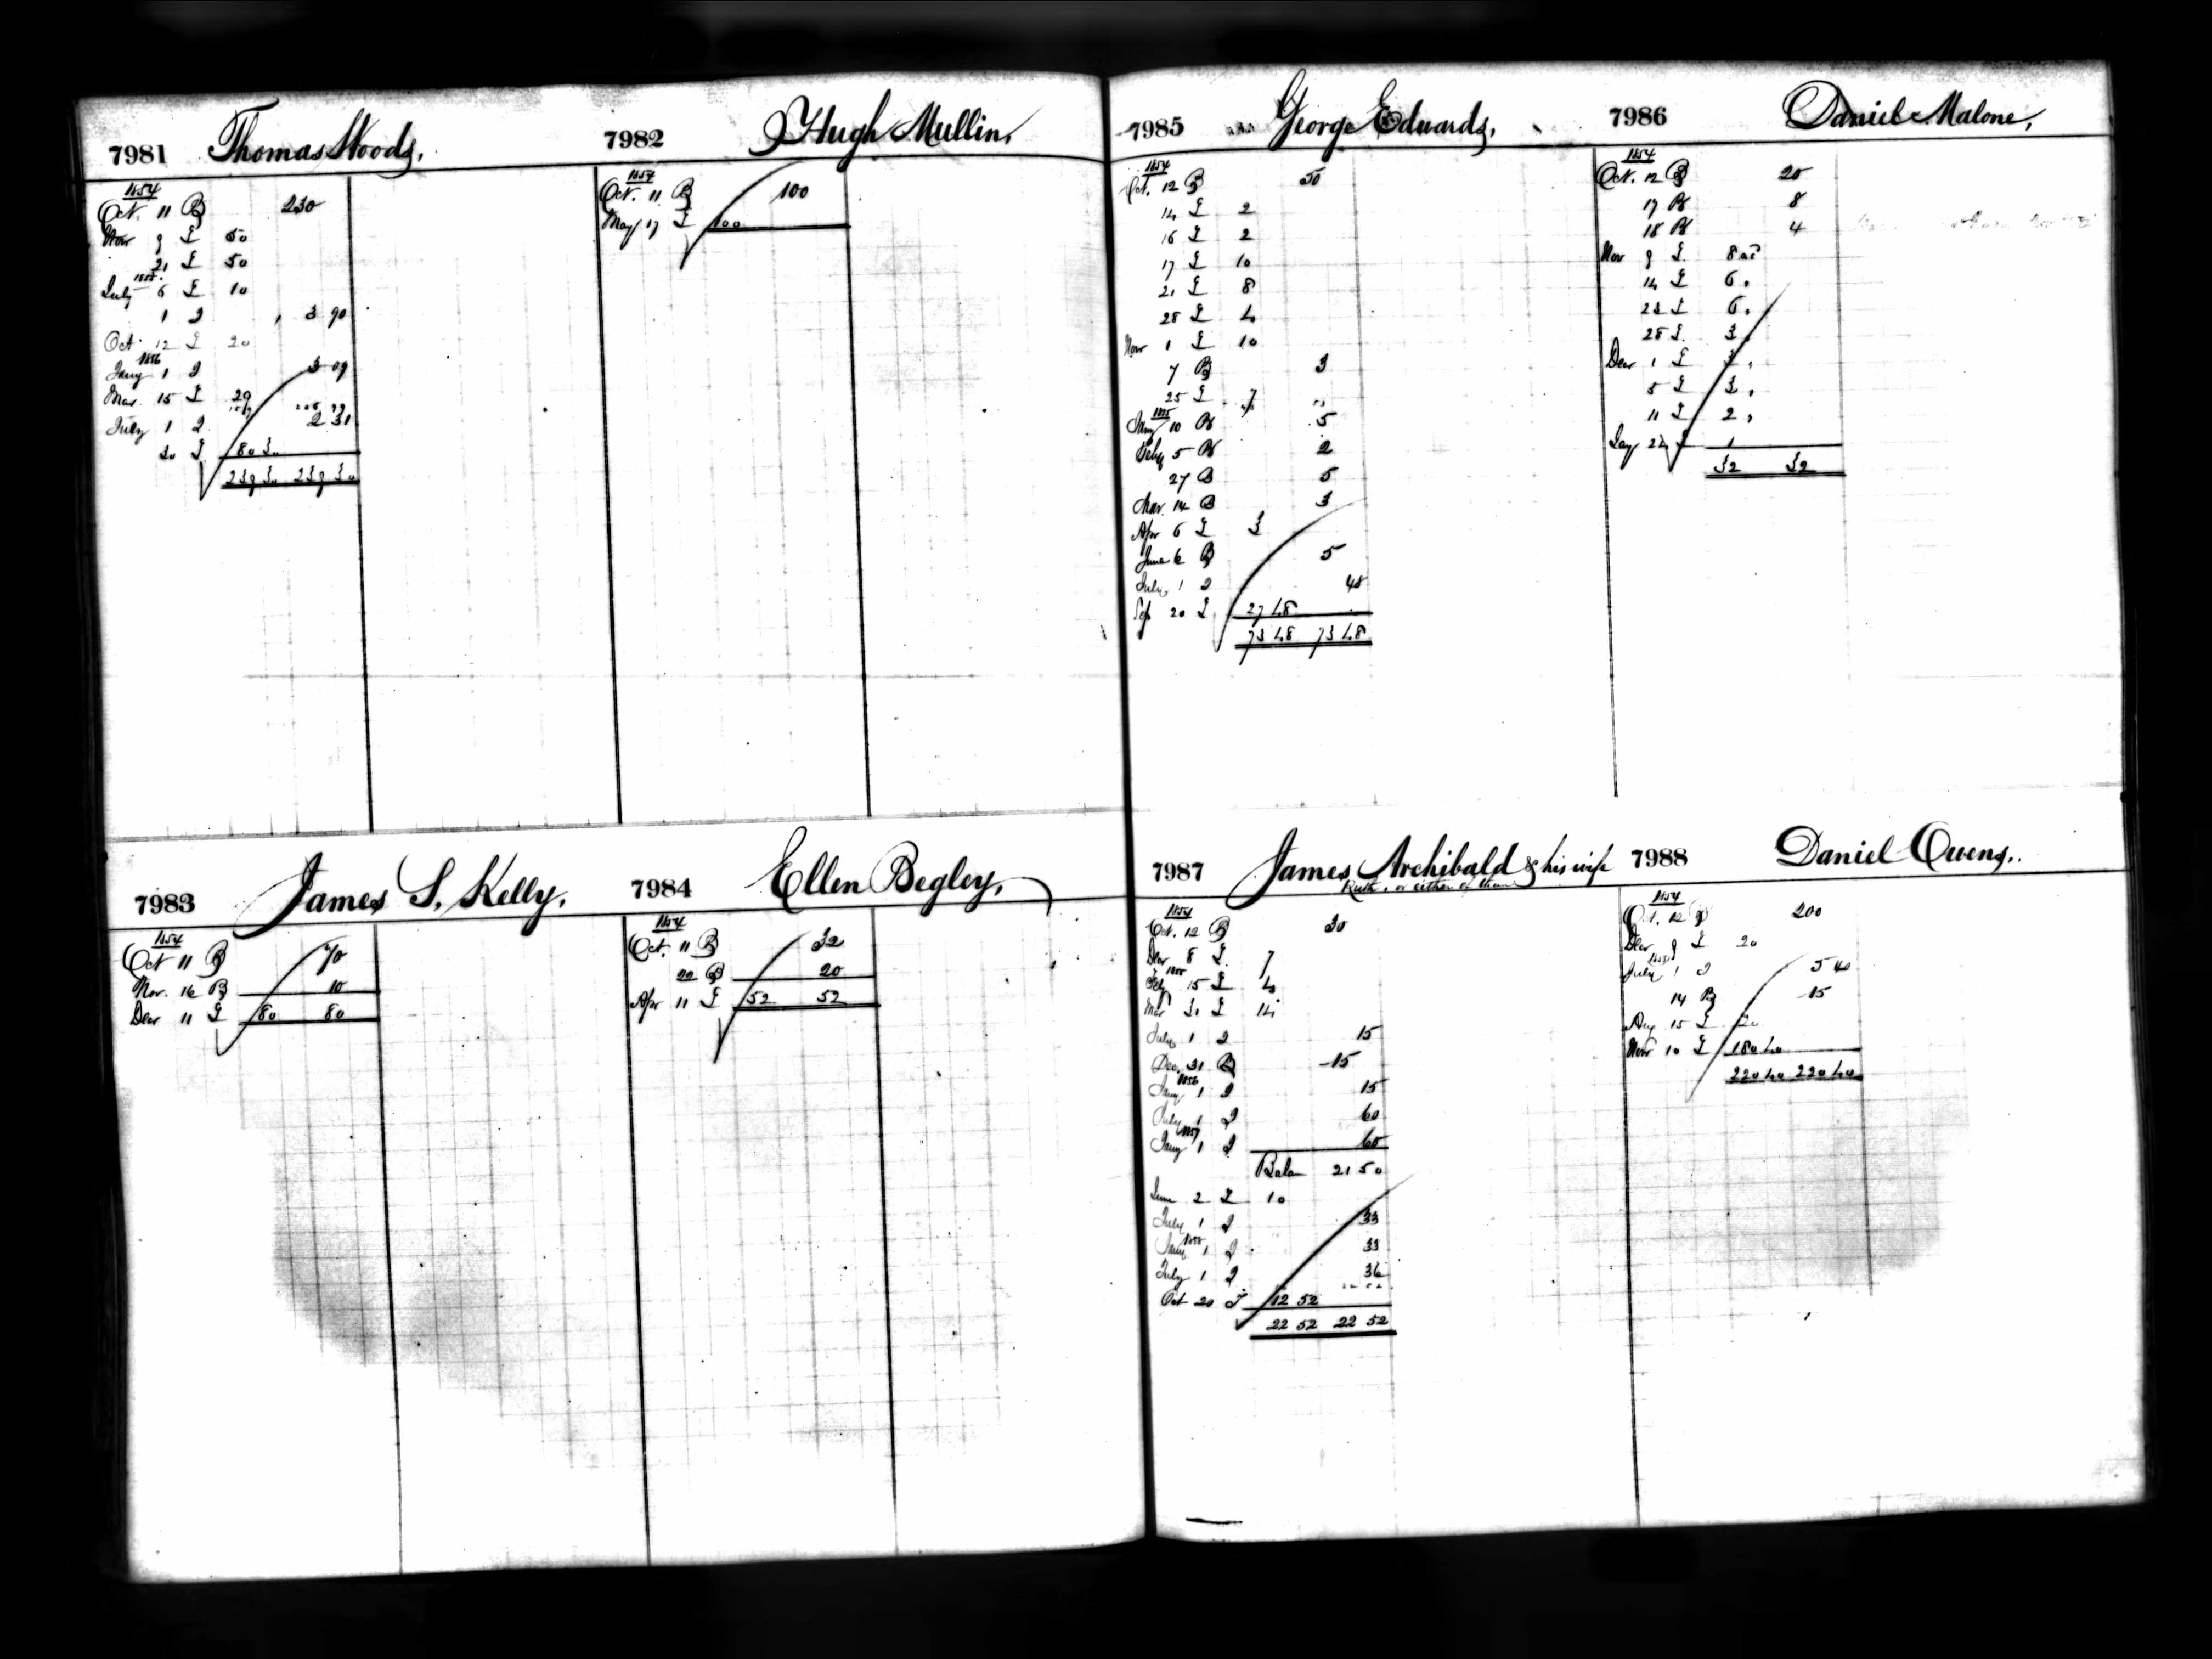 7981 Thomas Woods,
1854
Oct. 11 B 230
Nov 9 £ 50
21 £ 50
1855
July 6 £ 10
1 I 3 90
Oct. 12 £ 20
1856
Jany 1 I 3 09
Mar. 15 £ 29
July 1 I 2 31
30 £ 80 30
239 30 239 30
7982 Hugh Mullin,
1854
Oct. 11 B 100
May 17 £ 100
7983 James S. Kelly,
1854
Oct 11 B 70
Nov. 16 B 10
Decr 11 £ 80 80
7984 Ellen Begley,
1854
Oct. 11 B 32
22 B 20
Apr 11 £ 52 52
7985 George Edwards,
1854
Oct. 12 B 50
14 £ 2
16 £ 2
17 £ 10
21 £ 8
28 £ 4
Nov 1 £ 10
7 B 3
25 £ 7
1855
Jany 10 B 5
Feby 5 B 2
27 B 5
Mar. 14 B 3
Apr 6 £ 3
June 6 B 5
July 1 I 48
Sep 20 £ 27 48
73 48 73 48
7986 Daniel Malone,
1854
Oct. 12 B 20
17 B 8
18 B 4
Nov 9 £ 8
14 £ 6
23 £ 6
28 £ 3
Decr 1 £ 3
5 £ 3
11 £ 2
£ 1
32 32
7987 James Archibald & his wife
Ruth, or either of them
1854
Oct. 12 B 30
Decr 8 £ 7
1855
15 £ 4
Mar 31 £ 14
July 1 I 15
Dec. 31 B 15
1856
Jany 1 I 15
July 1 I 60
1857
Jany 1 I 60
Balan 21 50
June 2 £ 10
July 1 I 33
1858
Jany 1 I 33
July 1 I 36
Oct 20 £ 12 52
22 52 22 52
7988 Daniel Owens,
1854
Oct. 12 B 200
Decr 9 £ 20
1855
July 1 I 5 40
14 B 15
Aug 15 £ 20
Nov 10 £ 180 40
220 40 220 40